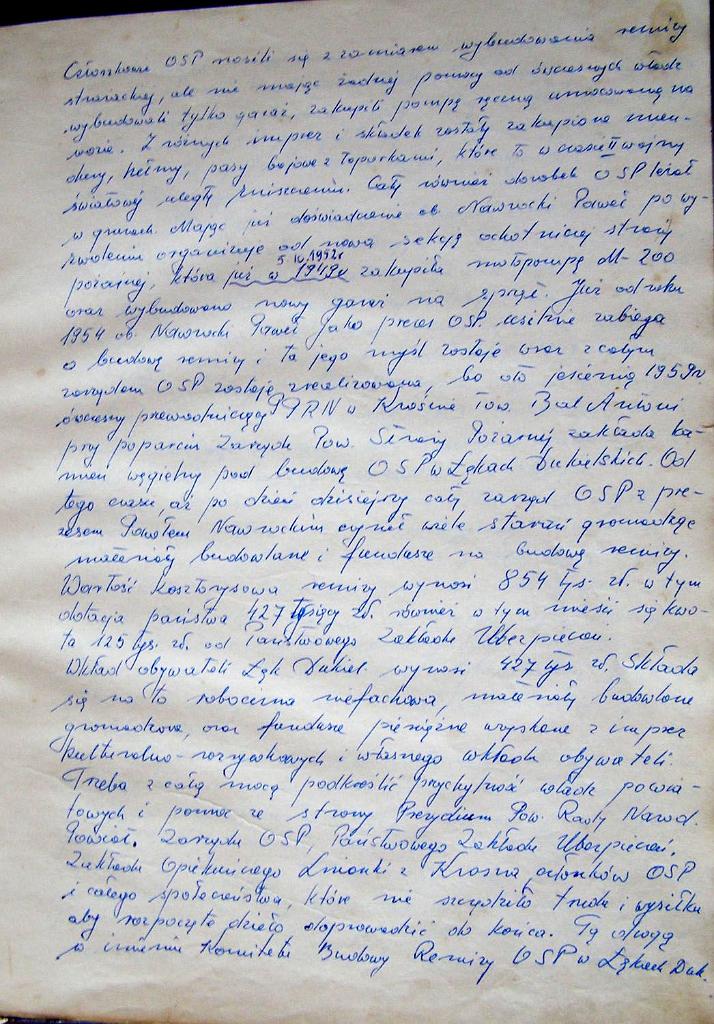 Członkowie OSP nosili się z zamiarem wybudowania remizy
strażackiej, ale nie mając żadnej pomocy od ówczesnych władz
wybudowali tylko garaż, zakupili pompę ręczną umocowaną na
wozie. Z różnych imprez i składek zostały zakupione mun-
dury, hełmy, pasy bojowe z toporkami, które to w czasie II wojny
światowej uległy zniszczeniu. Cały również dorobek OSP leżał
w gruzach. Mając już doświadczenie ob. Nawrocki Paweł po wy-
zwoleniu organizuje od nowa sekcję ochotniczej straży
5 IV. 1952r
pożarnej, która już w 1949r zakupiła motopompę M-200
oraz wybudowano nowy garaż na sprzęt. Już od roku
1954 ob. Nawrocki Paweł jako prezes OSP. usilnie zabiega
o budowę remizy i ta jego myśl zostaje wraz z całym
zarządem OSP zostaje zrealizowana, bo oto jesienią 1959r
ówczesny przewodniczący PPRN w Krośnie tow. Bal Antoni
przy poparciu Zarządu Pow. Straży Pożarnej zakłada ka-
mień węgielny pod budowę OSP w Łękach Dukielskich. Od
tego czasu, aż po dzień dzisiejszy cały zarząd OSP z pre-
zesem Pawłem Nawrockim czynił wiele starań gromadząc
materiały budowlane i fundusze na budowę remizy.
Wartość kosztorysowa remizy wynosi 854 tys. zł. w tym
dotacja państwa 427 tysięcy zł. również w tym mieści się kwo-
ta 125 tys. zł. od Państwowego Zakładu Ubezpieczeń.
Wkład obywateli Łęk Dukiel. wynosi 427 tys. zł. Składa
się na to robocizna niefachowa, materiały budowlane
gromadzone, oraz fundusze pieniężne uzyskane z imprez
kulturalno-rozrywkowych i własnego wkładu obywateli.
Trzeba z całą mocą podkreślić przychylność władz powia-
towych i pomoc ze strony Prezydium Pow. Rady Narod.
Powiat. Zarządu OSP, Państwowego Zakładu Ubezpieczeń,
Zakładu Opiekuńczego z Krosna, członków OSP
i całego społeczeństwa, które nie szczędziło trudu i wysiłku
aby rozpoczęte dzieło doprowadzić do końca. Tą drogą
w imieniu Komitetu Budowy Remizy OSP w Łękach Duk.